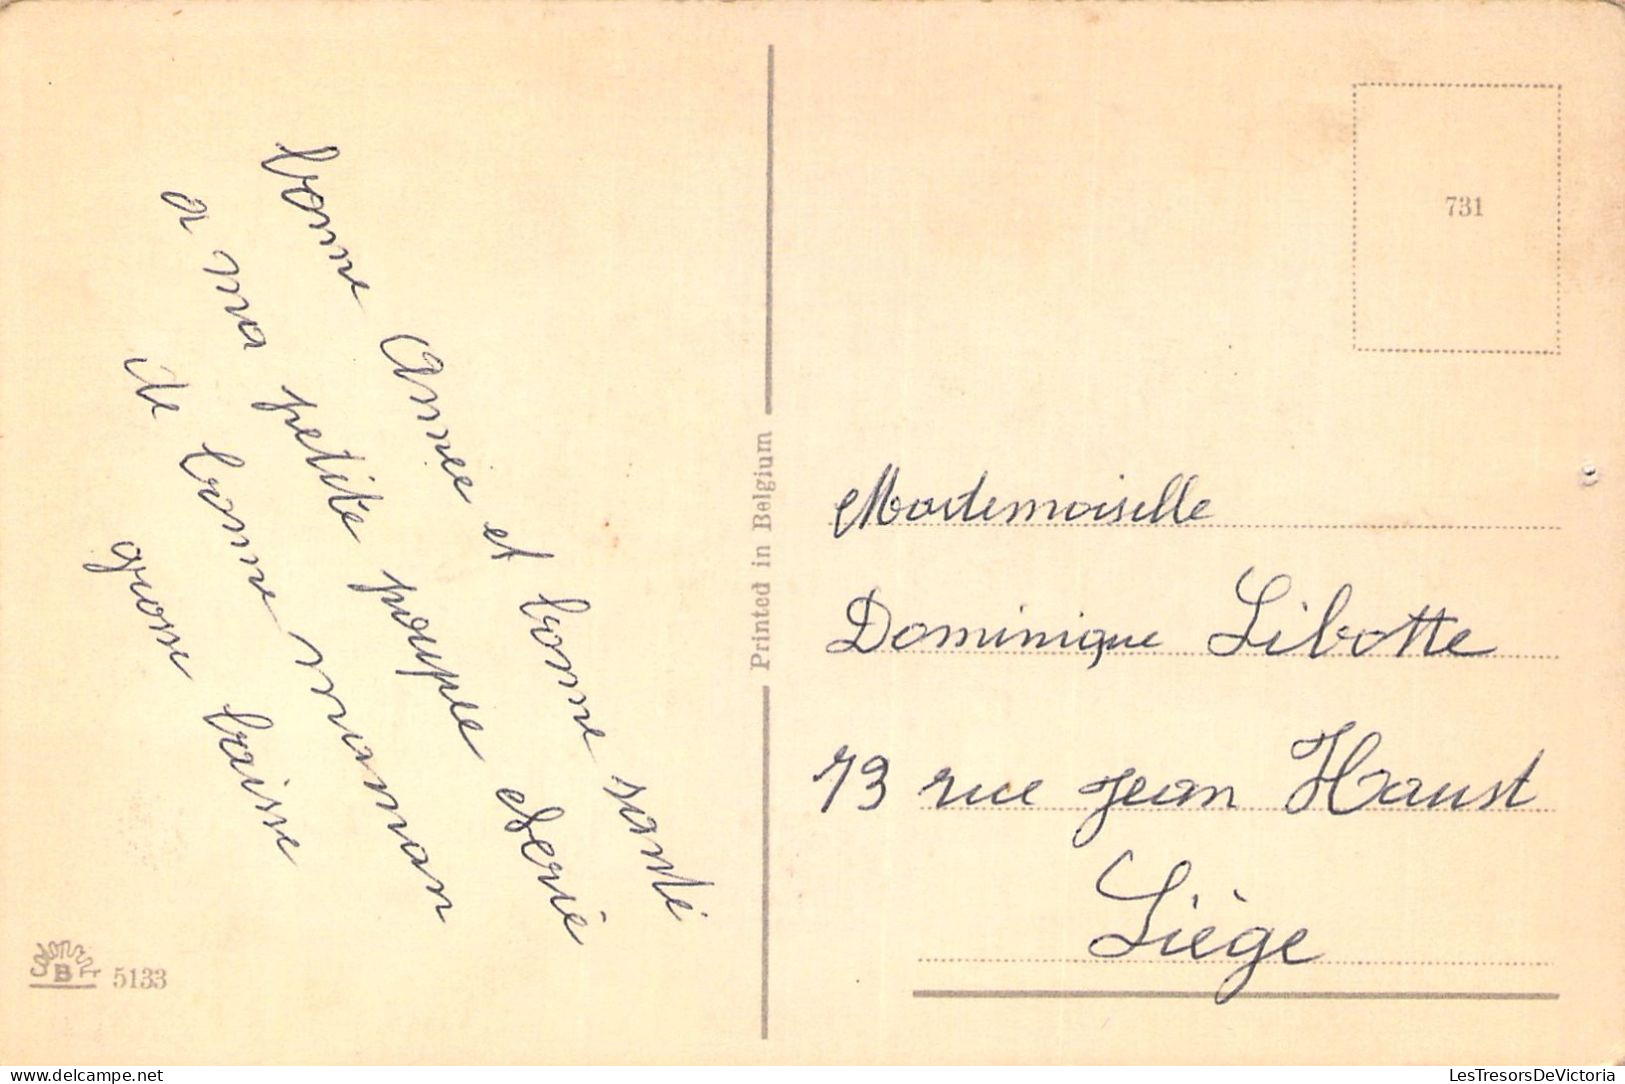 bonne Année et bonne santé
a ma petite poupée cherié
de bonne maman
grosse baisse
Printed in Belgium
731
Mademoiselle
Dominique Libotte
73 rue Jean Haust
Liège
B
5133
LesTresorsDeVictoria